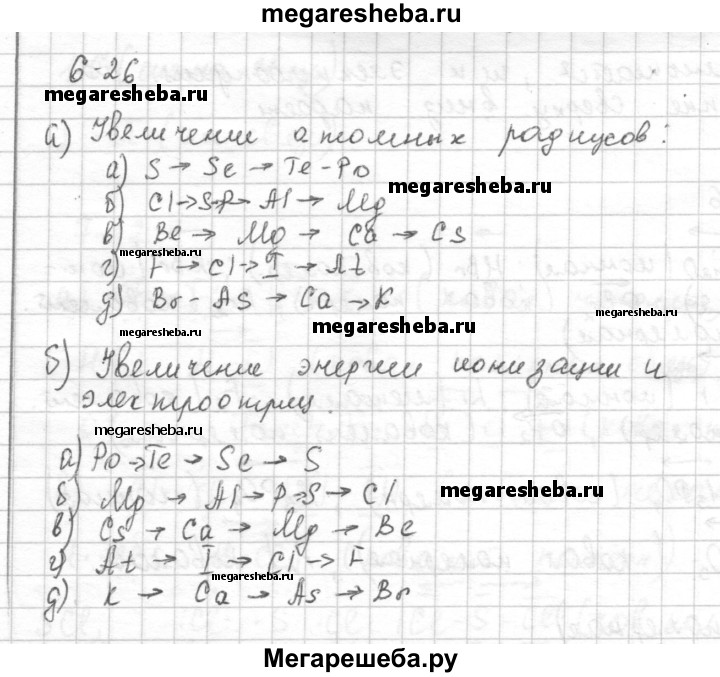 megaresheba.ru
6-26
megaresheba.ru
а) Увеличение атомных радиусов:
а) S → Se → Te - Po
megaresheba.ru
б) Cl → S → P → Al → Mg
в) Be → Mg → Ca → Cs
megaresheba.ru
г) F → Cl → I → At
д) Br - As → Ca → K
megaresheba.ru
megaresheba.ru
б) Увеличение энергии ионизации и
электроотриц.
megaresheba.ru
а) Po → Te → Se → S
б) Mg → Al → P → S → Cl
megaresheba.ru
в) Cs → Ca → Mg → Be
г) At → I → Cl → F
megaresheba.ru
д) K → Ca → As → Br
Мегарешеба.ру